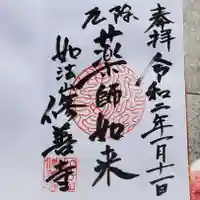 奉拝　令和二年一月十一日
厄除
薬師如来
如法山修善寺